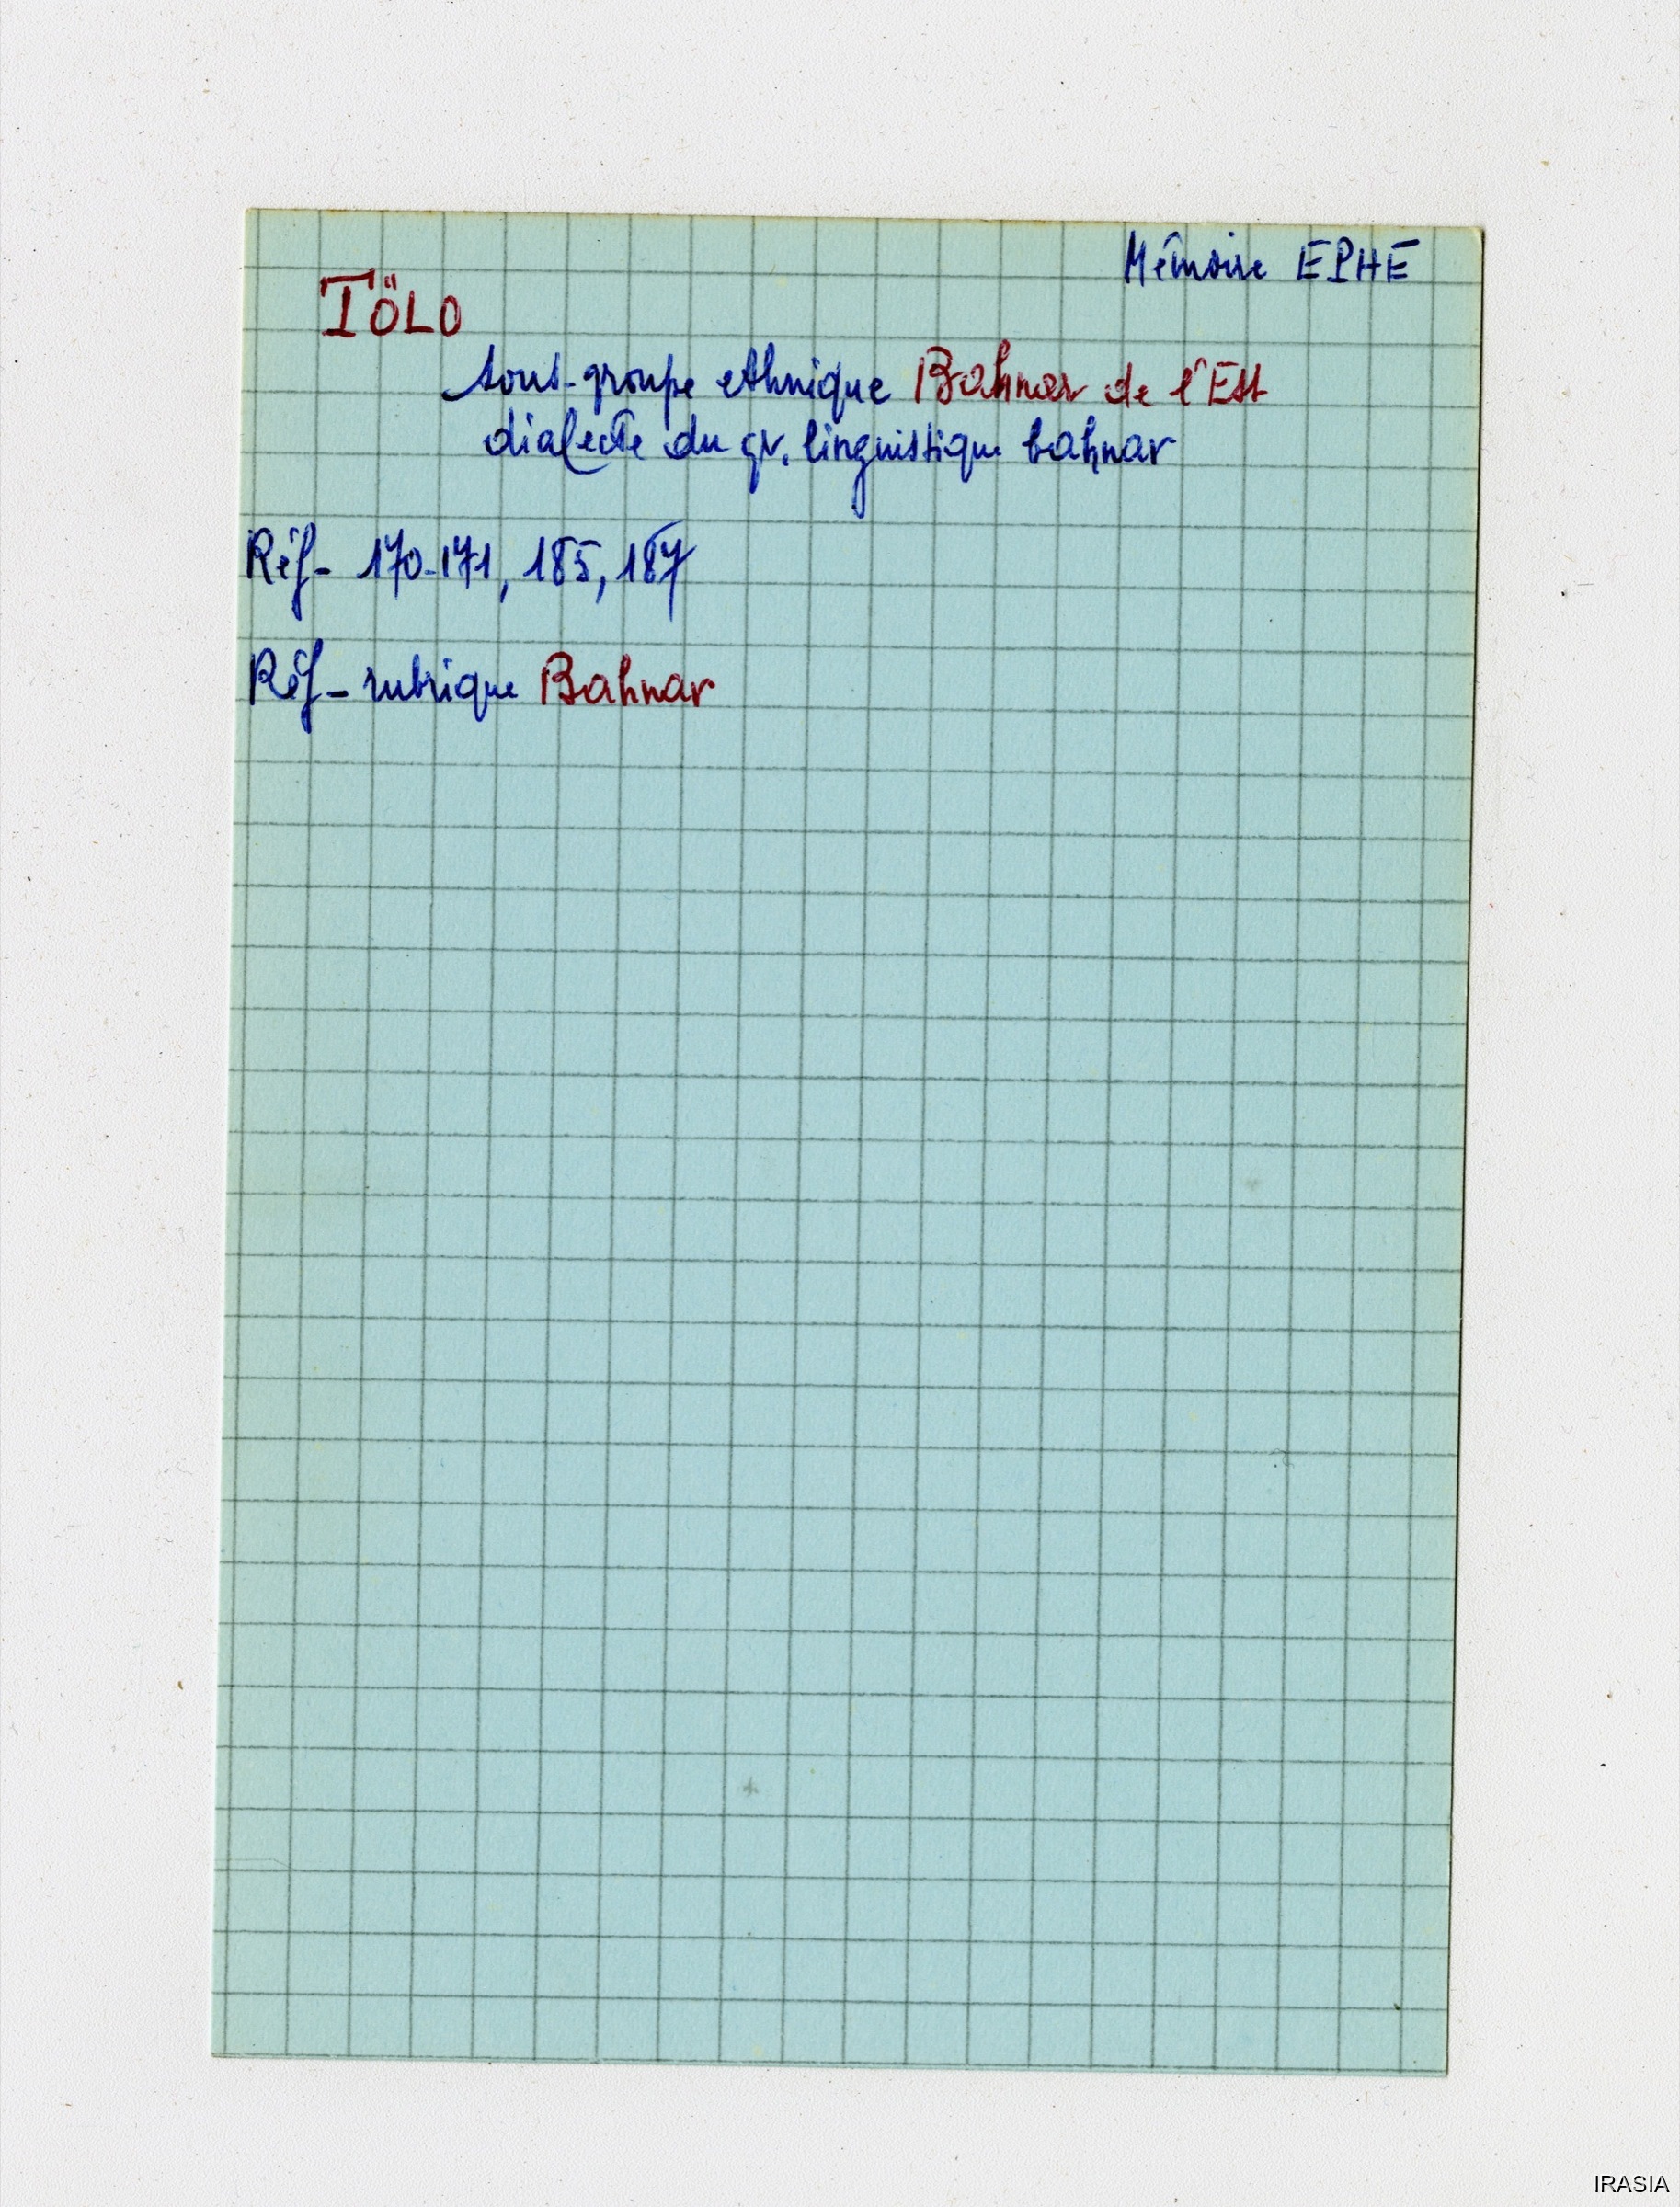 Mémoire EPHE
TÖLO
sous-groupe ethnique Bahnar de l'Est
dialecte du gr. linguistique bahnar
Réf- 170-171, 185, 187
Réf- rubrique Bahnar
IRASIA